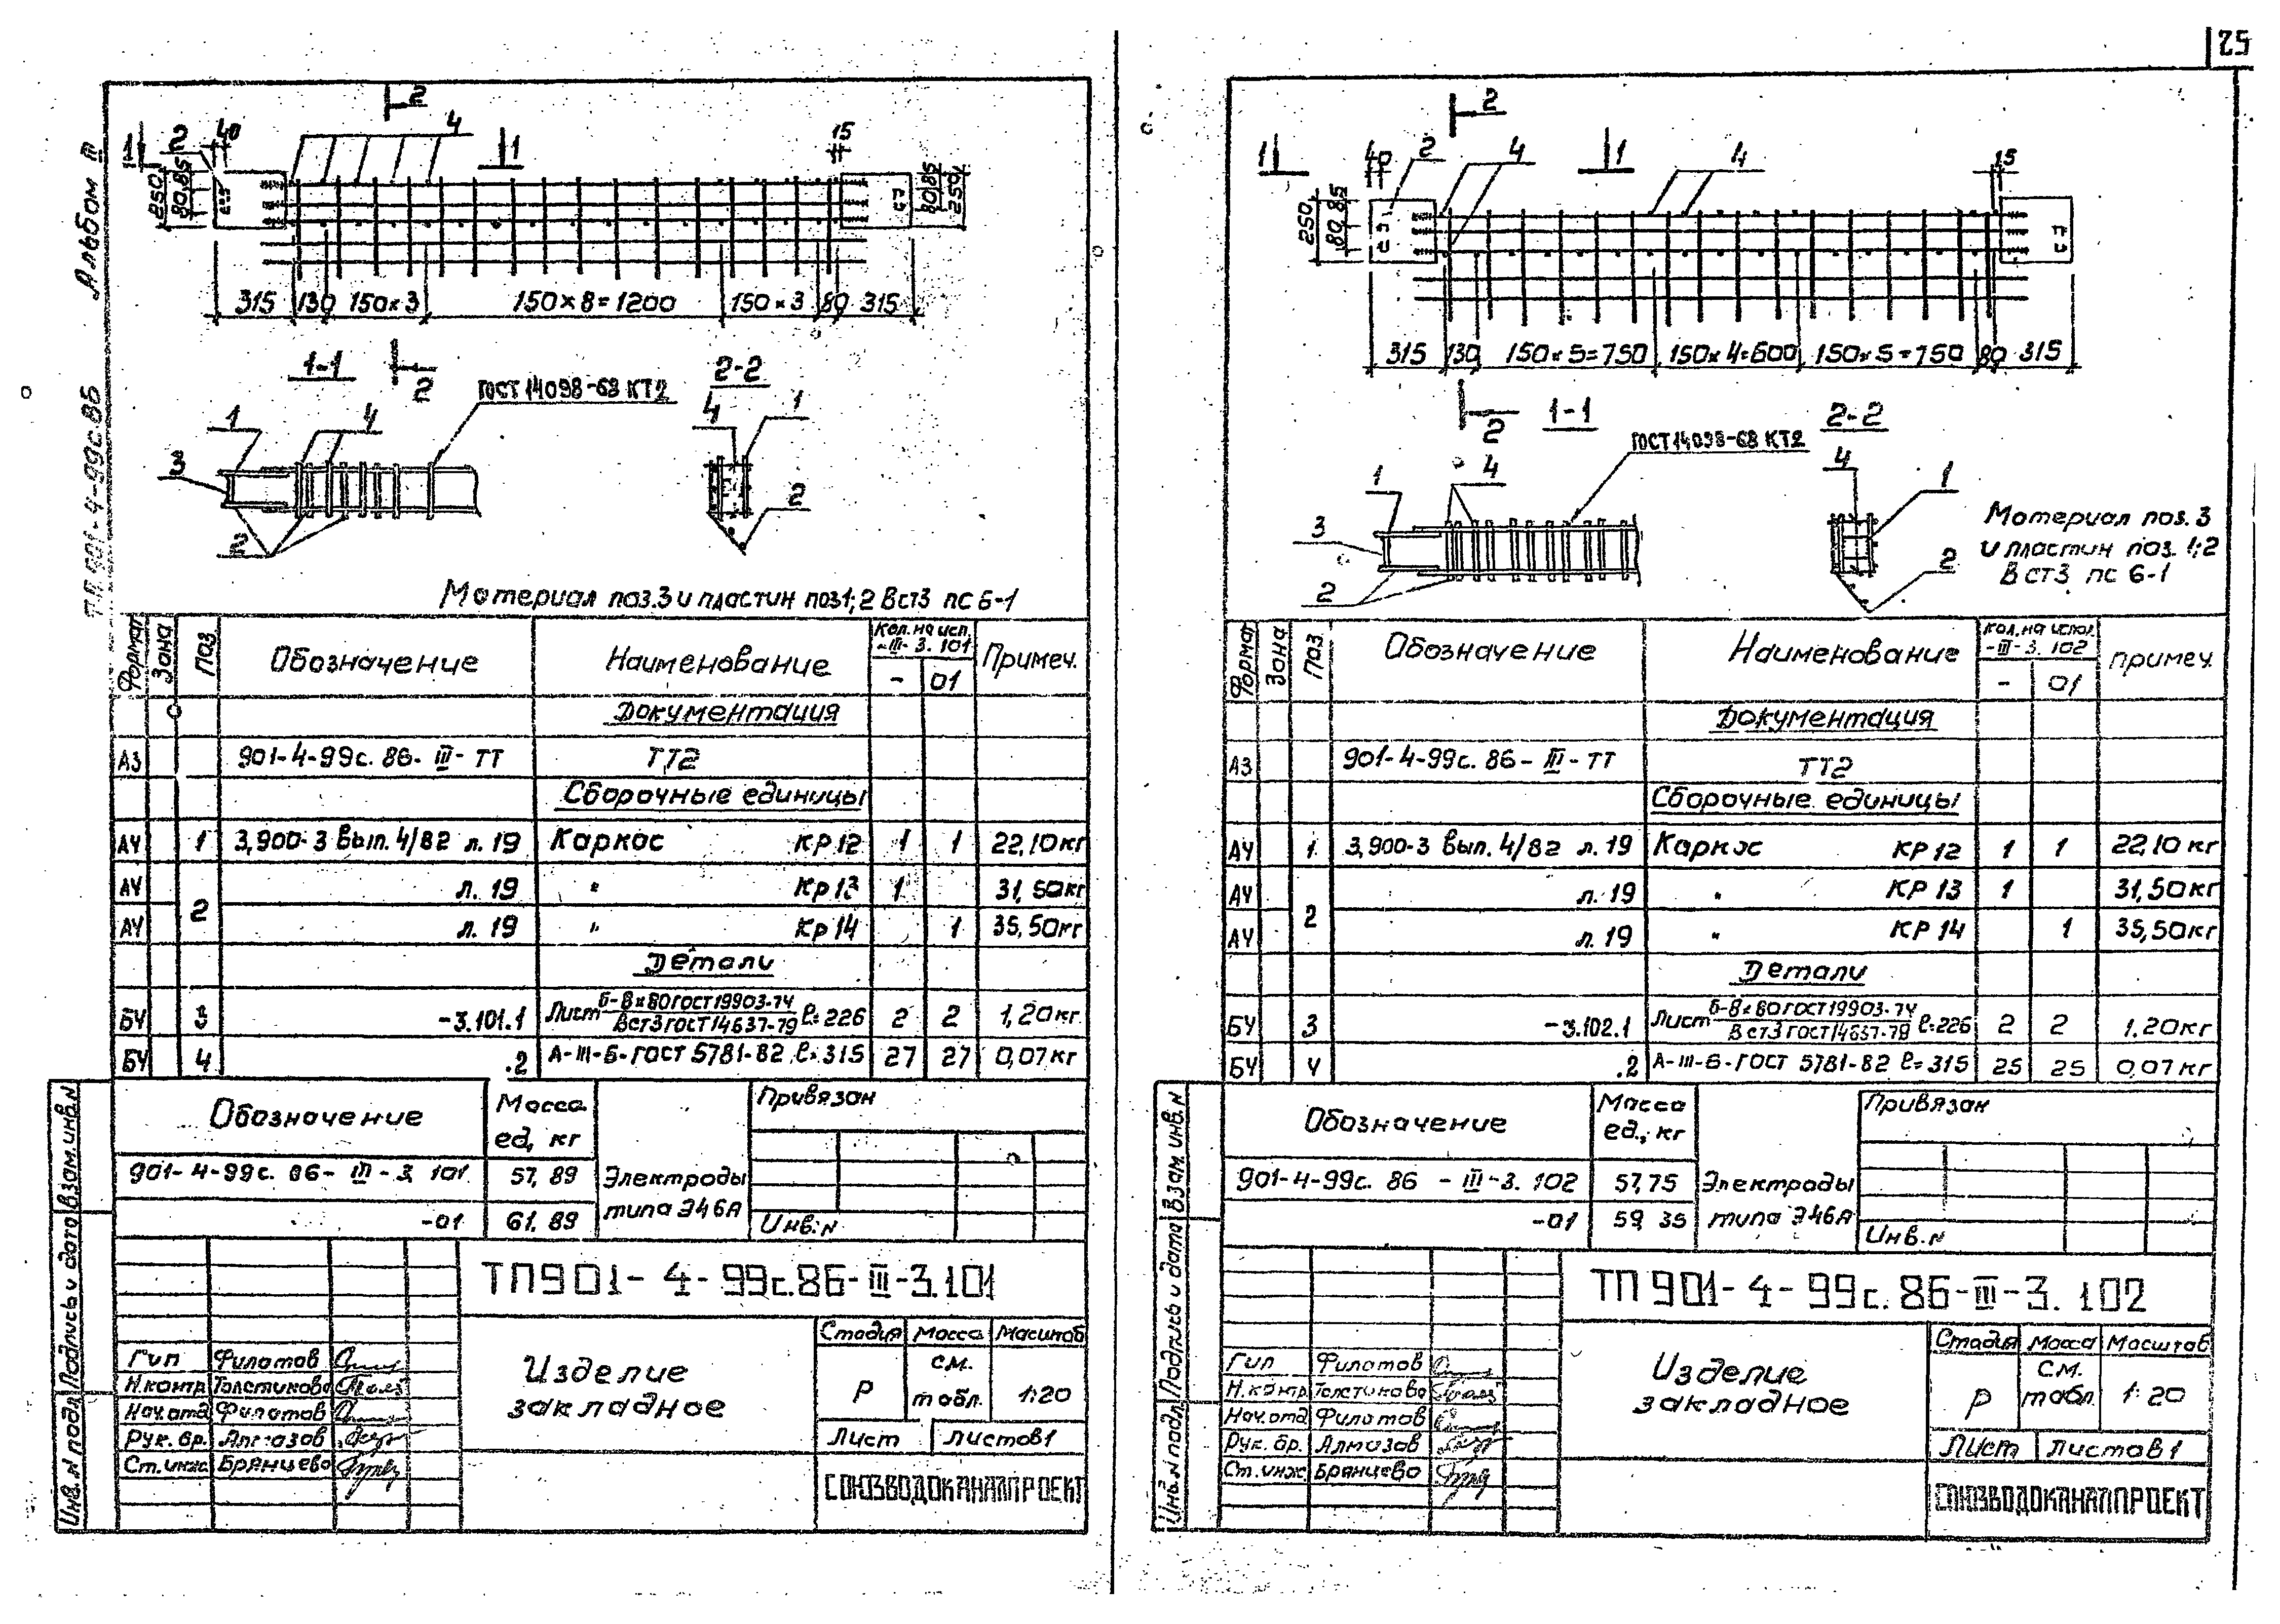 25
Альбом III
Т.П. 901-4-99с.86
2
1
2
40
4
1
15
250
80
85
80
85
250
315
130
150×3
150×8=1200
150×3
80
315
1-1
2
2-2
ГОСТ 14098-68 КТ2
1
4
3
2
4
1
2
Материал поз.3 и пластин поз1;2 Вст3 пс 6-1
Формат
Зона
Поз
Обозначение
Наименование
Кол. на исп.
-III-3.101
- 01
Примеч.
Документация
А3 901-4-99с.86-III-ТТ ТТ2
Сборочные единицы
А4 1 3,900-3 вып.4/82 л.19 Каркас КР12 1 1 22,10кг
А4 л.19 " Кр13 1 31,50кг
2
А4 л.19 " Кр14 1 35,50кг
Детали
БЧ 3 -3.101.1 Лист б-8×80ГОСТ19903-74 / Вст3ГОСТ14637-79 ℓ=226 2 2 1,20кг
БЧ 4 .2 А-III-6-ГОСТ 5781-82 ℓ=315 27 27 0,07кг
Обозначение
Масса
ед, кг
Привязан
901-4-99с.86-III-3.101 57,89
-01 61,89
Электроды
типа Э46А
Инв.N
ТП901-4-99с.86-III-3.101
Гип Филатов
Н.контр Толстикова
Нач.отд Филатов
Рук. бр. Алмазов
Ст.инж. Брянцева
Изделие
закладное
Стадия Масса Масштаб
Р см.
табл. 1:20
Лист Листов1
СОЮЗВОДОКАНАЛПРОЕКТ
Взам.инв.N
Подпись и дата
Инв.N подл
2
1
40
2
4
1
4
15
250
80
85
315
130
150×5=750
150×4=600
150×5=750
80
315
2
1-1
2-2
ГОСТ14098-68 КТ2
1
4
3
2
4
1
2
Материал поз.3
и пластин поз.1;2
Вст3 пс 6-1
Формат
Зона
Поз
Обозначение
Наименование
Кол. на испол.
-III-3.102
- 01
примеч.
Документация
А3 901-4-99с.86-III-ТТ ТТ2
Сборочные единицы
А4 1 3,900-3 вып.4/82 л.19 Каркас КР12 1 1 22,10кг
А4 л.19 " КР13 1 31,50кг
2
А4 л.19 " КР14 1 35,50кг
Детали
БЧ 3 -3.102.1 Лист б-8×80ГОСТ19903-74 / Вст3ГОСТ14637-79 ℓ=226 2 2 1,20кг
БЧ 4 .2 А-III-6-ГОСТ 5781-82 ℓ=315 25 25 0,07кг
Обозначение
Масса
ед., кг
Привязан
901-4-99с.86-III-3.102 57,75
-01 59,35
Электроды
типа Э46А
Инв.N
ТП901-4-99с.86-III-3.102
Гип Филатов
Н.контр Толстикова
Нач.отд Филатов
Рук. бр. Алмазов
Ст.инж. Брянцева
Изделие
закладное
Стадия Масса Масштаб
Р см.
табл. 1:20
Лист Листов1
СОЮЗВОДОКАНАЛПРОЕКТ
Взам.инв.N
Подпись и дата
Инв.N подл